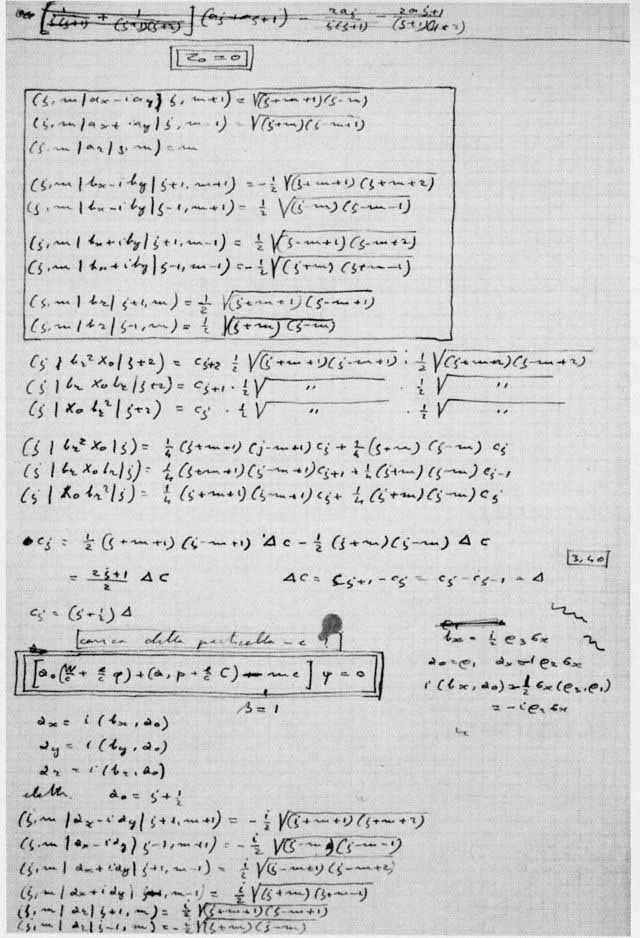 [1/(j(j+1)) + 1/((j+1)(j+2))] (aj + aj+1) − 2aj/(j(j+1)) − 2aj+1/((j+1)(j+2))
Z₀ = 0
(j, m | ax − i ay | j, m+1) = √(j+m+1)(j−m)
(j, m | ax + i ay | j, m−1) = √(j+m)(j−m+1)
(j, m | az | j, m) = m
(j, m | bx − i by | j+1, m+1) = −½ √(j+m+1)(j+m+2)
(j, m | bx − i by | j−1, m+1) = ½ √(j−m)(j−m−1)
(j, m | bx + i by | j+1, m−1) = ½ √(j−m+1)(j−m+2)
(j, m | bx + i by | j−1, m−1) = −½ √(j+m)(j+m−1)
(j, m | bz | j+1, m) = ½ √(j+m+1)(j−m+1)
(j, m | bz | j−1, m) = ½ √(j+m)(j−m)
(j | bz² X₀ | j+2) = cj+2 ½ √(j+m+1)(j−m+1) · ½ √(j+m+2)(j−m+2)
(j | bz X₀ bz | j+2) = cj+1 · ½ √ " · ½ √ "
(j | X₀ bz² | j+2) = cj · ½ √ " · ½ √ "
(j | bz² X₀ | j) = ¼ (j+m+1)(j−m+1) cj + ¼ (j+m)(j−m) cj
(j | bz X₀ bz | j) = ¼ (j+m+1)(j−m+1) cj+1 + ¼ (j+m)(j−m) cj−1
(j | X₀ bz² | j) = ¼ (j+m+1)(j−m+1) cj + ¼ (j+m)(j−m) cj
cj = ½ (j+m+1)(j−m+1) Δc − ½ (j+m)(j−m) Δc
3,40
= (2j+1)/2 Δc Δc = cj+1 − cj = cj − cj−1 = Δ
cj = (j+½) Δ
carica della particella −e ?
[α₀(W/c + e/c φ) + (α, p + e/c C) − mc] ψ = 0
s = 1
bx = ½ ρ₃ σx
α₀ = ρ₁ αx = i ρ₂ σx
i (bx, α₀) = ½ σx (ρ₃, ρ₁)
= − i ρ₂ σx
αx = i (bx, α₀)
αy = i (by, α₀)
αz = i (bz, α₀)
α₀ = j + ½
(j, m | αx − i αy | j+1, m+1) = −i/2 √(j+m+1)(j+m+2)
(j, m | αx − i αy | j−1, m+1) = −i/2 √(j−m)(j−m−1)
(j, m | αx + i αy | j+1, m−1) = i/2 √(j−m+1)(j−m+2)
(j, m | αx + i αy | j−1, m−1) = i/2 √(j+m)(j+m−1)
(j, m | αz | j+1, m) = i/2 √(j+m+1)(j−m+1)
(j, m | αz | j−1, m) = −i/2 √(j+m)(j−m)